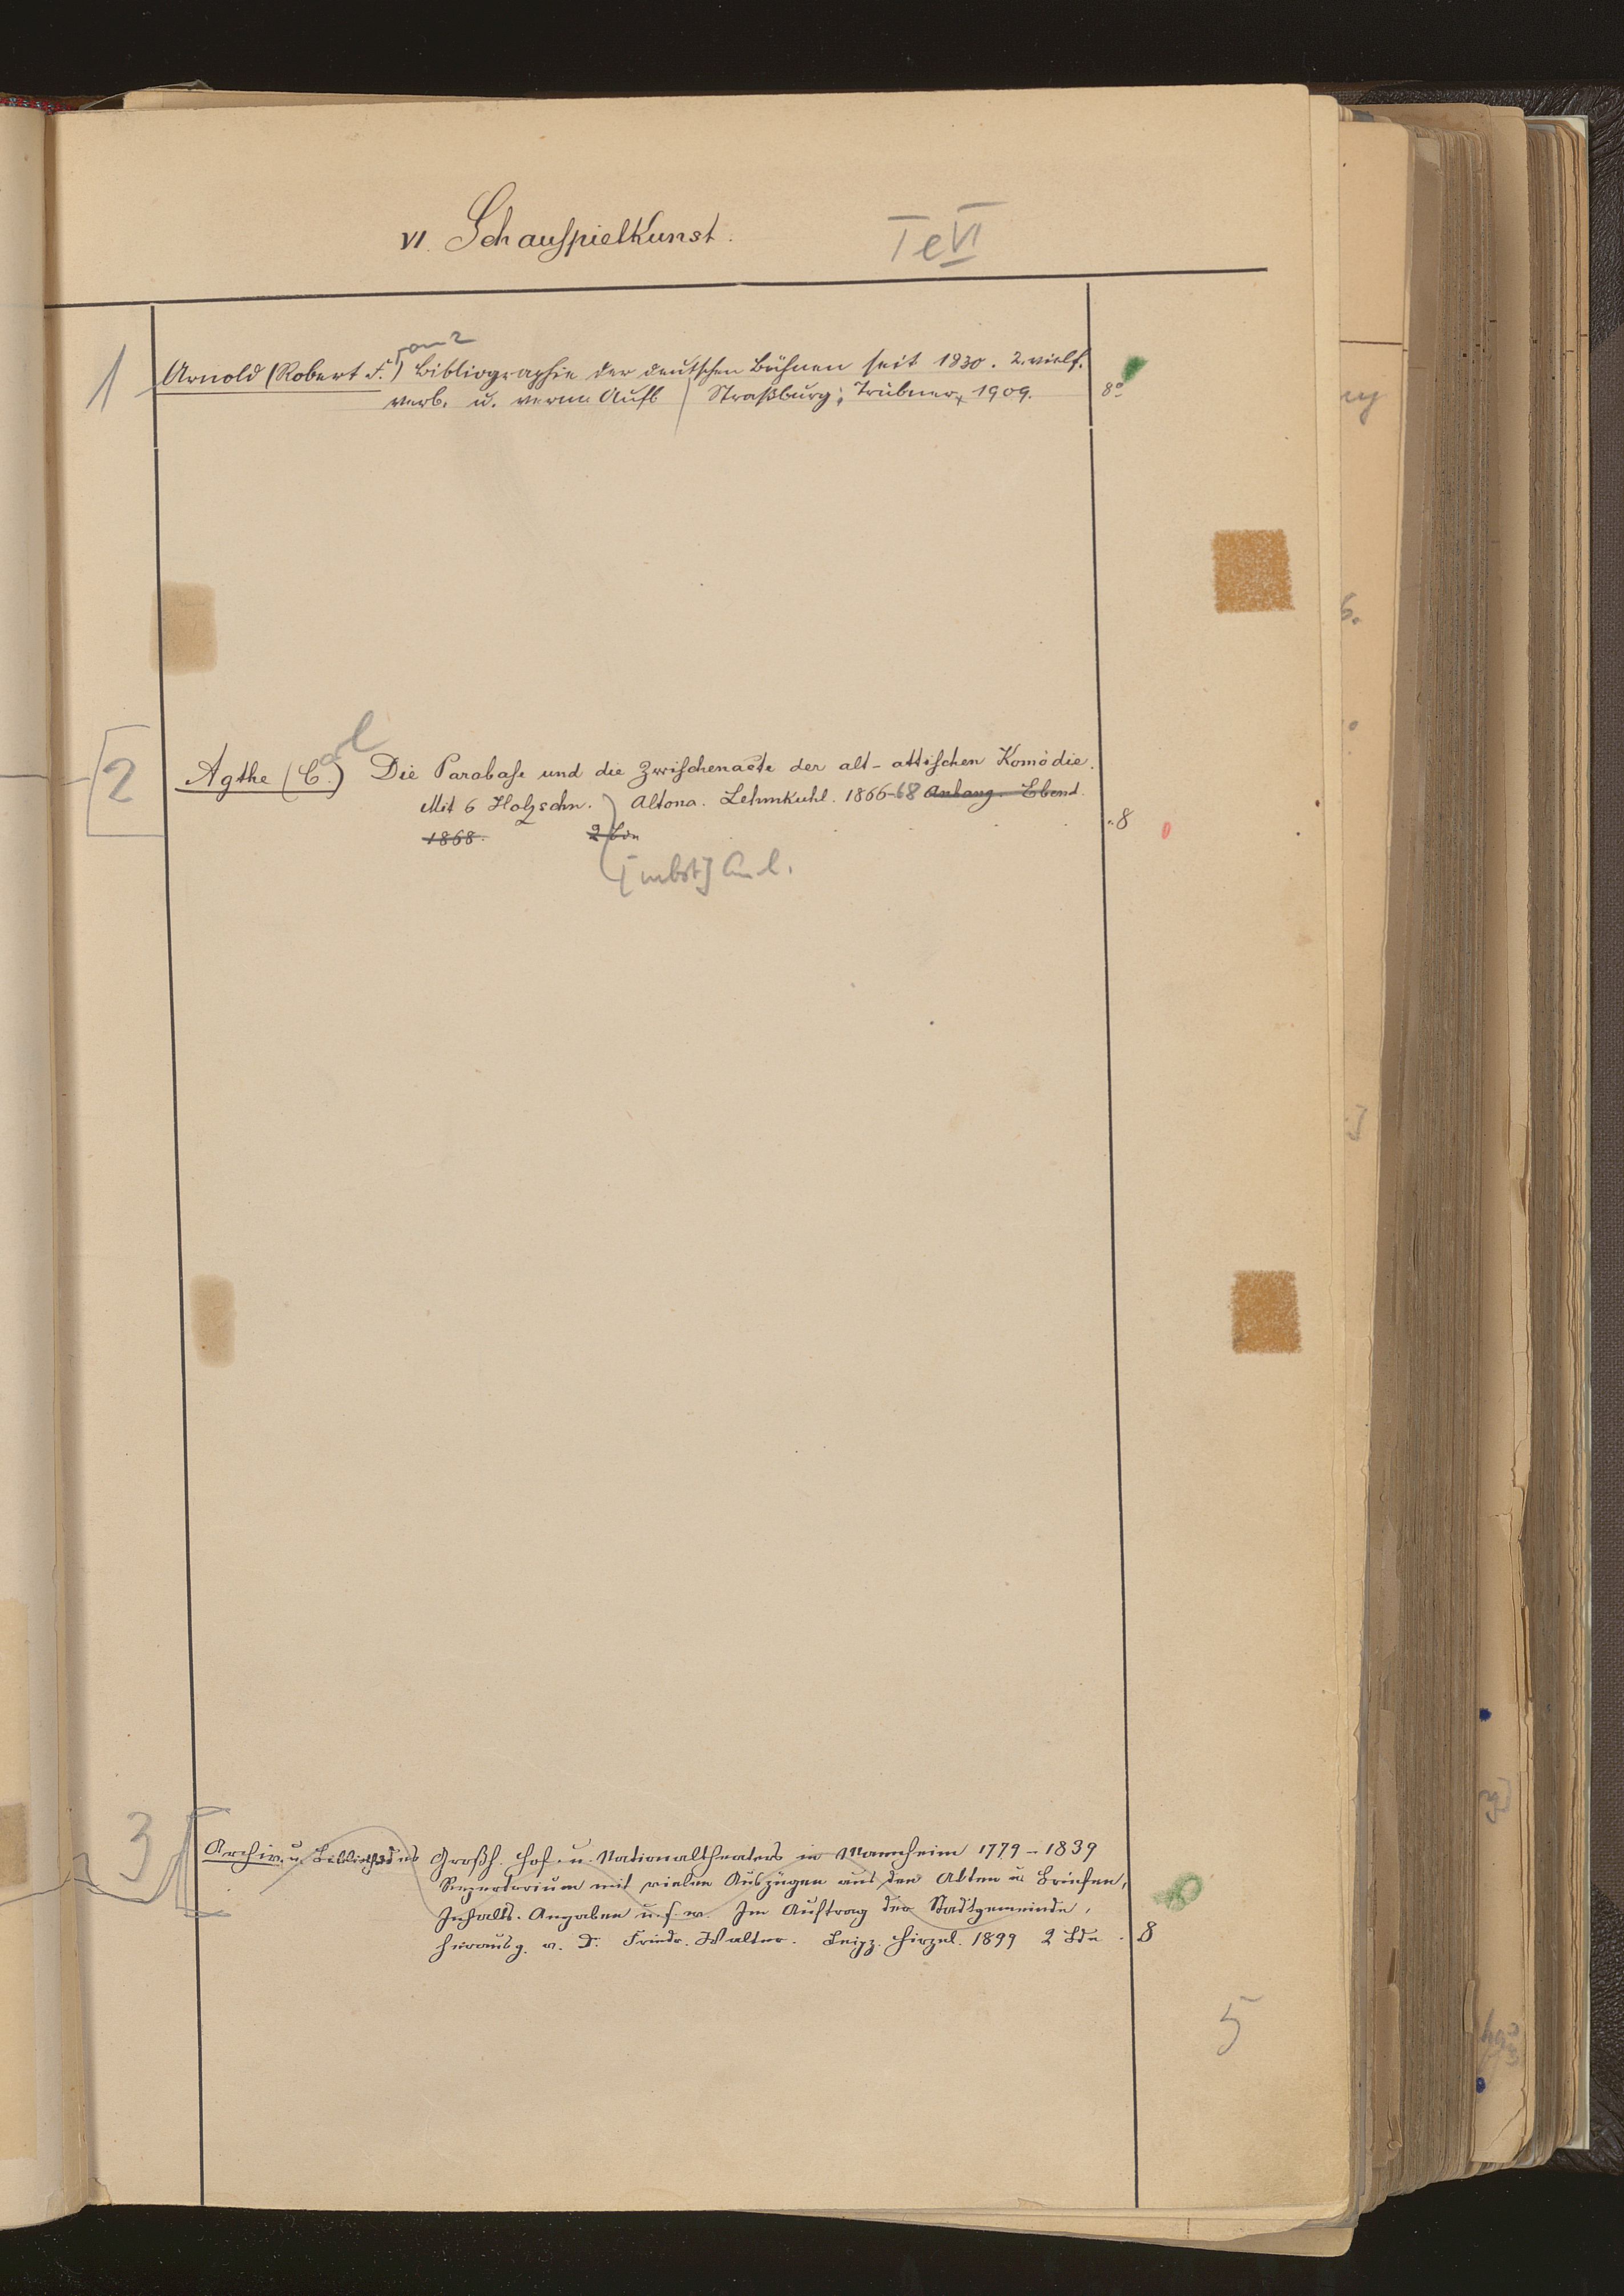 VI. Schauspielkunst.
Te VI
1 Arnold (Robert F.) Bibliographie der deutschen Bühnen seit 1830. 2. vielf.
verb. u. verm. Aufl. Straßburg: Trübner, 1909. 8°
2 Agthe (Carl) Die Parabase und die Zwischenacte der alt-attischen Komödie.
Mit 6 Holzschn. Altona. Lehmkuhl. 1866-68 Anhang. Ebend.
1868. 2 Bde 8
[nebst] Anh.
3 Archiv u. Biblioth. des Großh. Hof- u. Nationaltheaters in Mannheim 1779-1839
Repertorium mit vielen Auszügen aus den Akten u. Briefen,
Inhalts-Angaben u.s.w. Im Auftrag der Stadtgemeinde,
herausg. v. D. Friedr. Walter. Leipz. Hirzel. 1899 2 Bde. 8
5